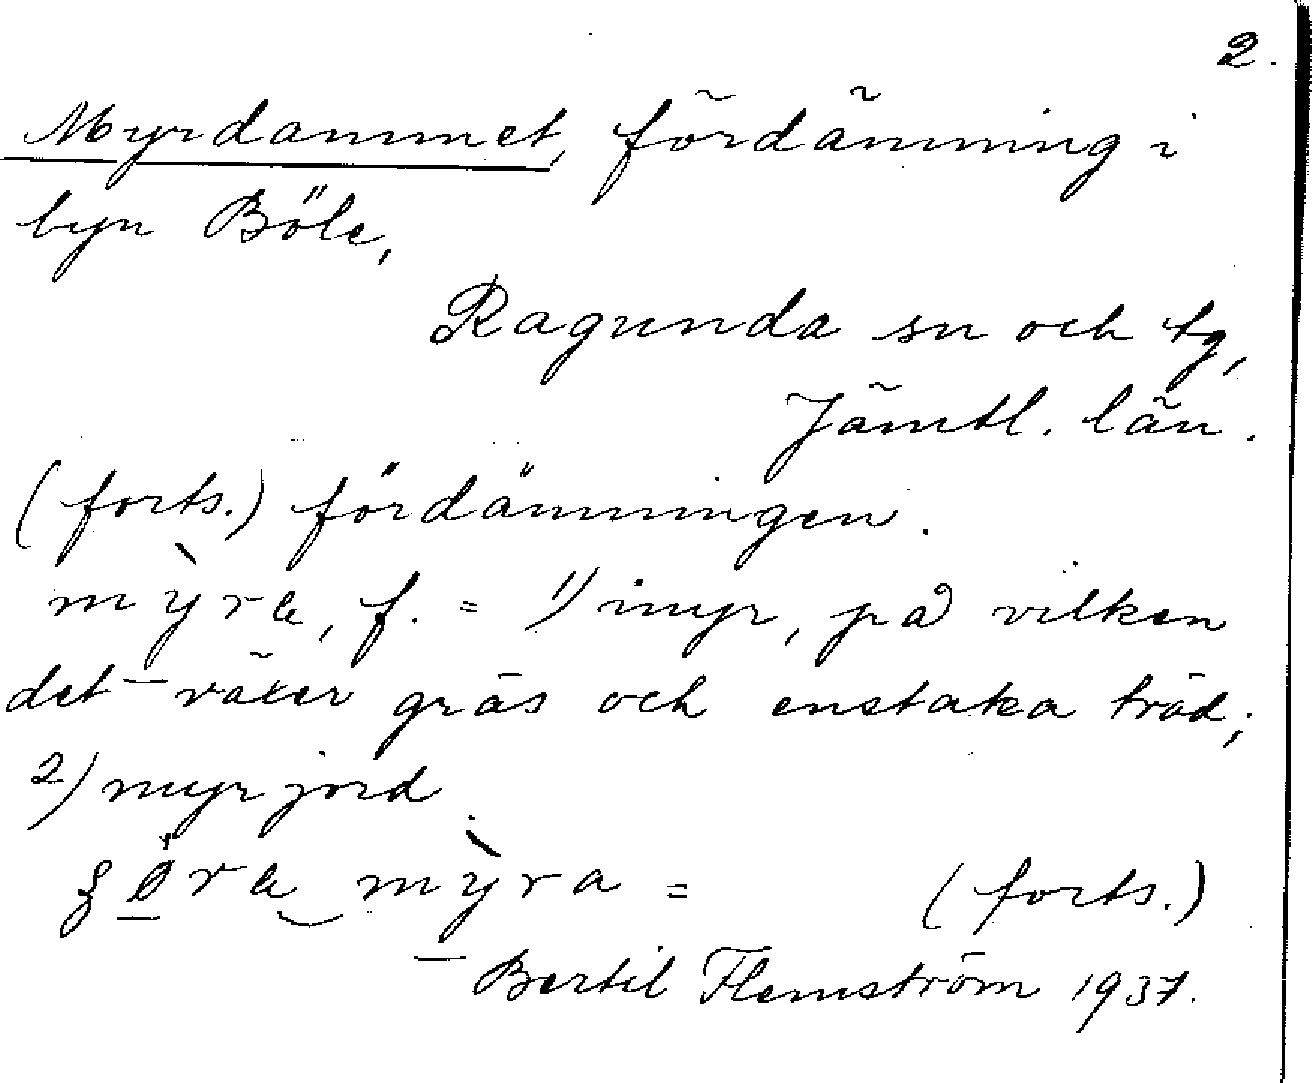 2.
Myrdammet, fördämning i
byn Böle,
Ragunda sn och tg,
Jämtl. län.
(forts.) fördämningen.
f. = 1) myr, på vilken
det växer gräs och enstaka träd;
2) myrjord.
= (forts.)
Bertil Flemström 1937.